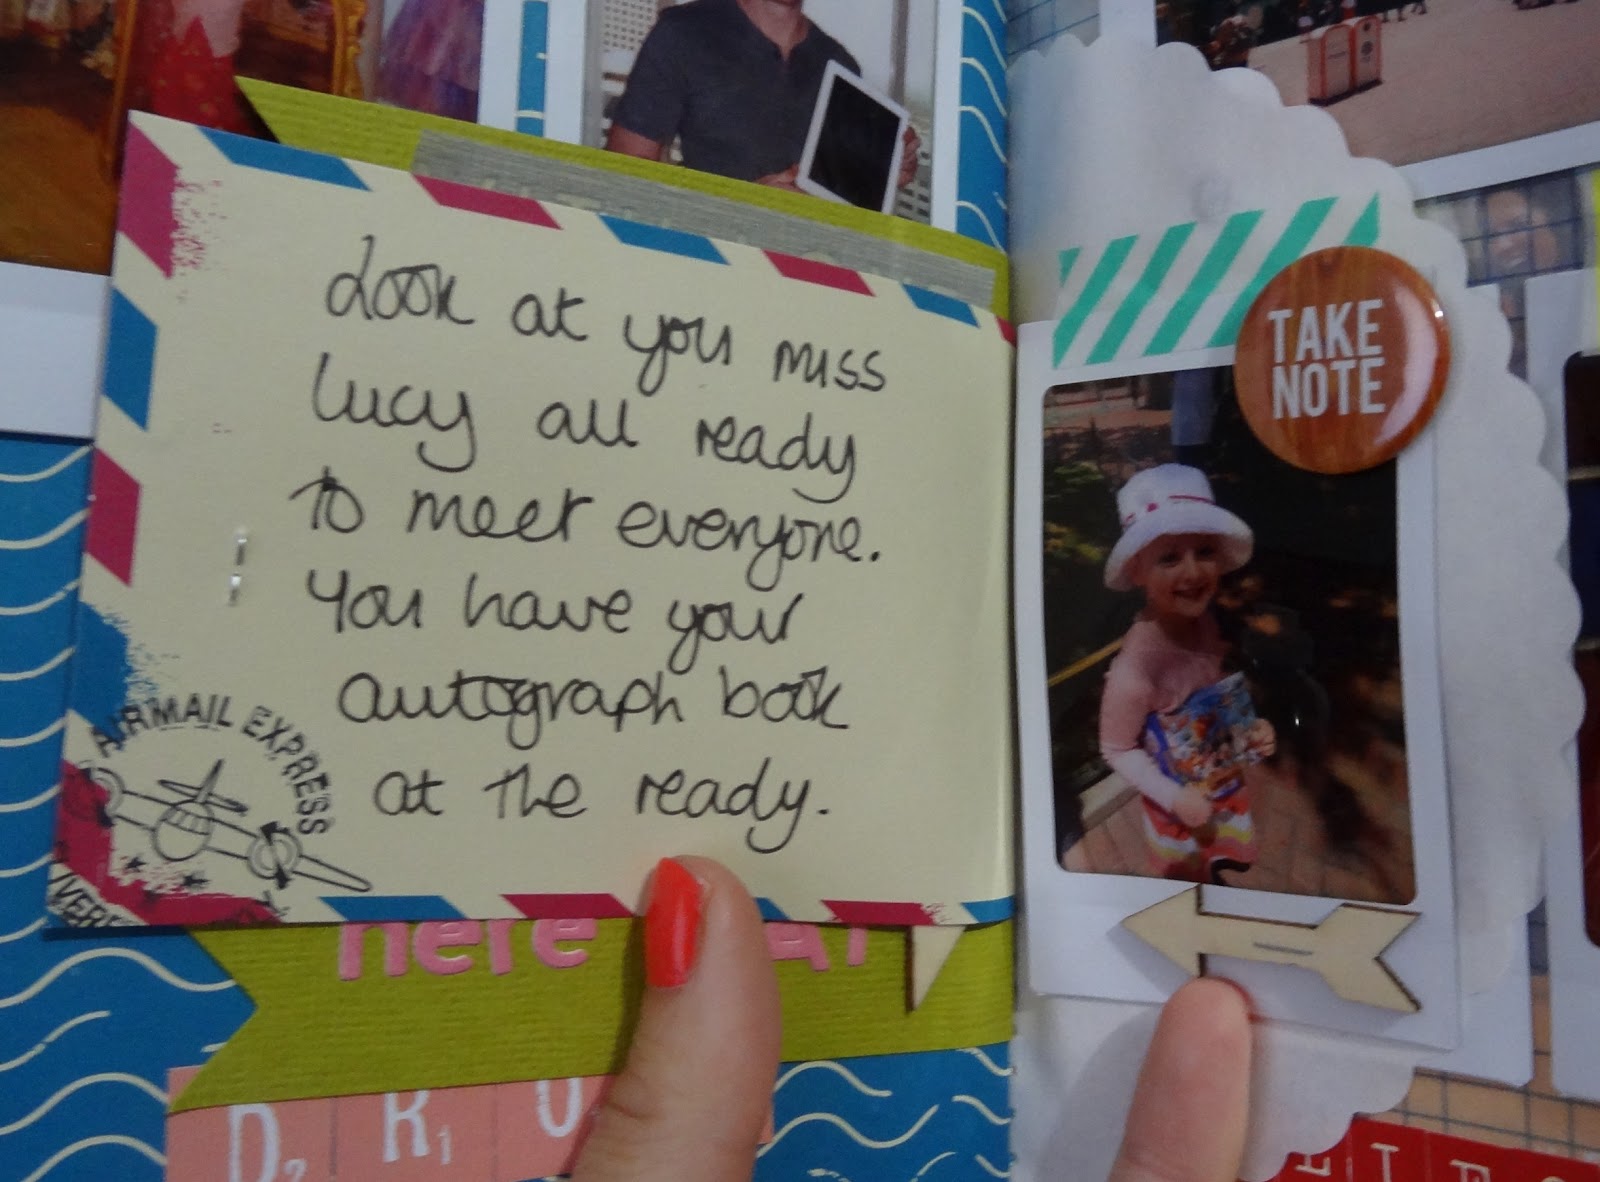 Look at you miss
Lucy all ready
to meet everyone.
You have your
autograph book
at the ready.
AIRMAIL EXPRESS
TAKE
NOTE
here
D2 R1 O